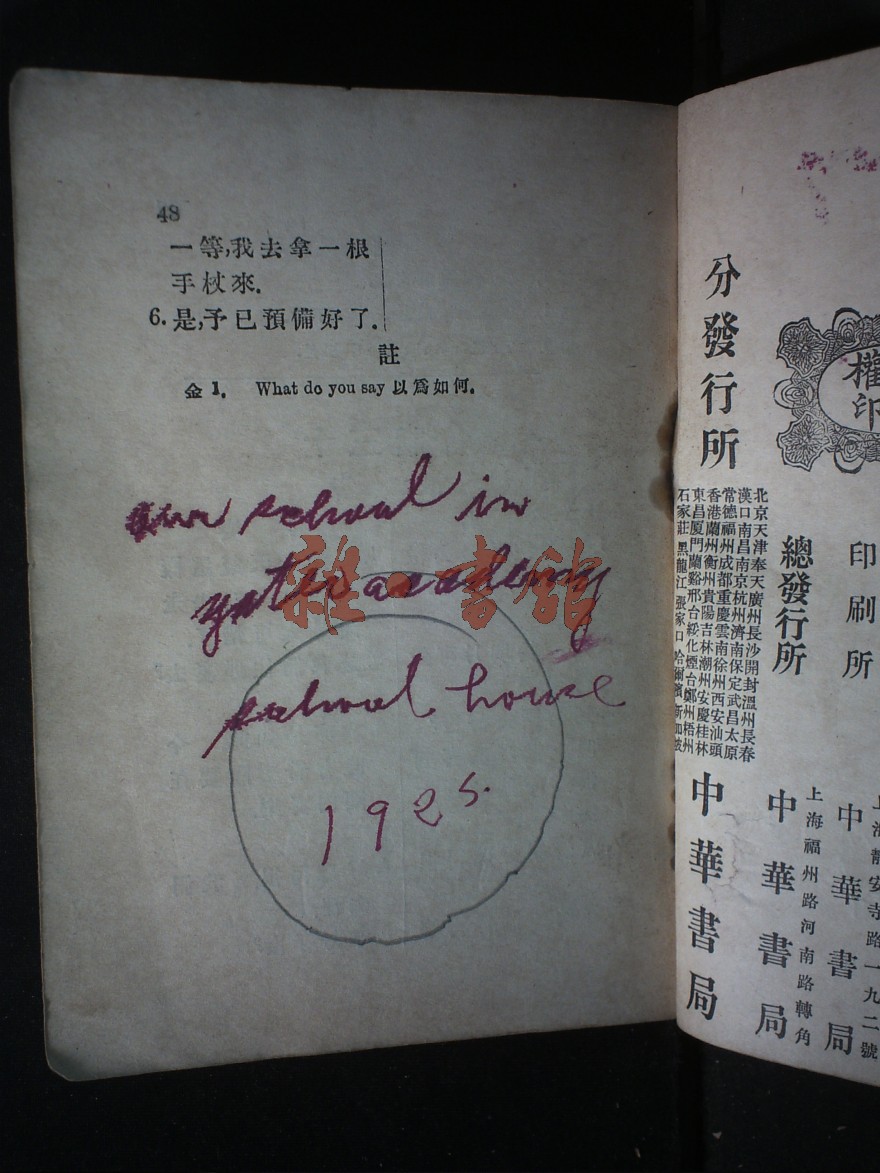 48
一等,我去拿一根
手杖來.
6. 是,予已預備好了.
註
金 1. What do you say 以爲如何.
our school in
yates academy
school house
1925.
雜·書館
權印
分發行所
北京天津奉天廣州長沙開封溫州長春
漢口南昌南京杭州濟南保定武昌太原
常德福州成都重慶雲南徐州西安汕頭
香港蘭州衡州貴陽吉林潮州安慶桂林
東昌厦門蘭谿邢台綏化煙台鄭州梧州
石家莊 黑龍江 張家口 哈爾濱 新加坡
中華書局
總發行所
上海福州路河南路轉角
中華書局
印刷所
上海靜安寺路一九二號
中華書局